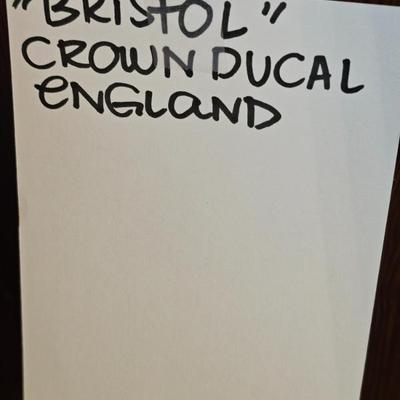 "BRISTOL"
CROWN DUCAL
eNGLaND